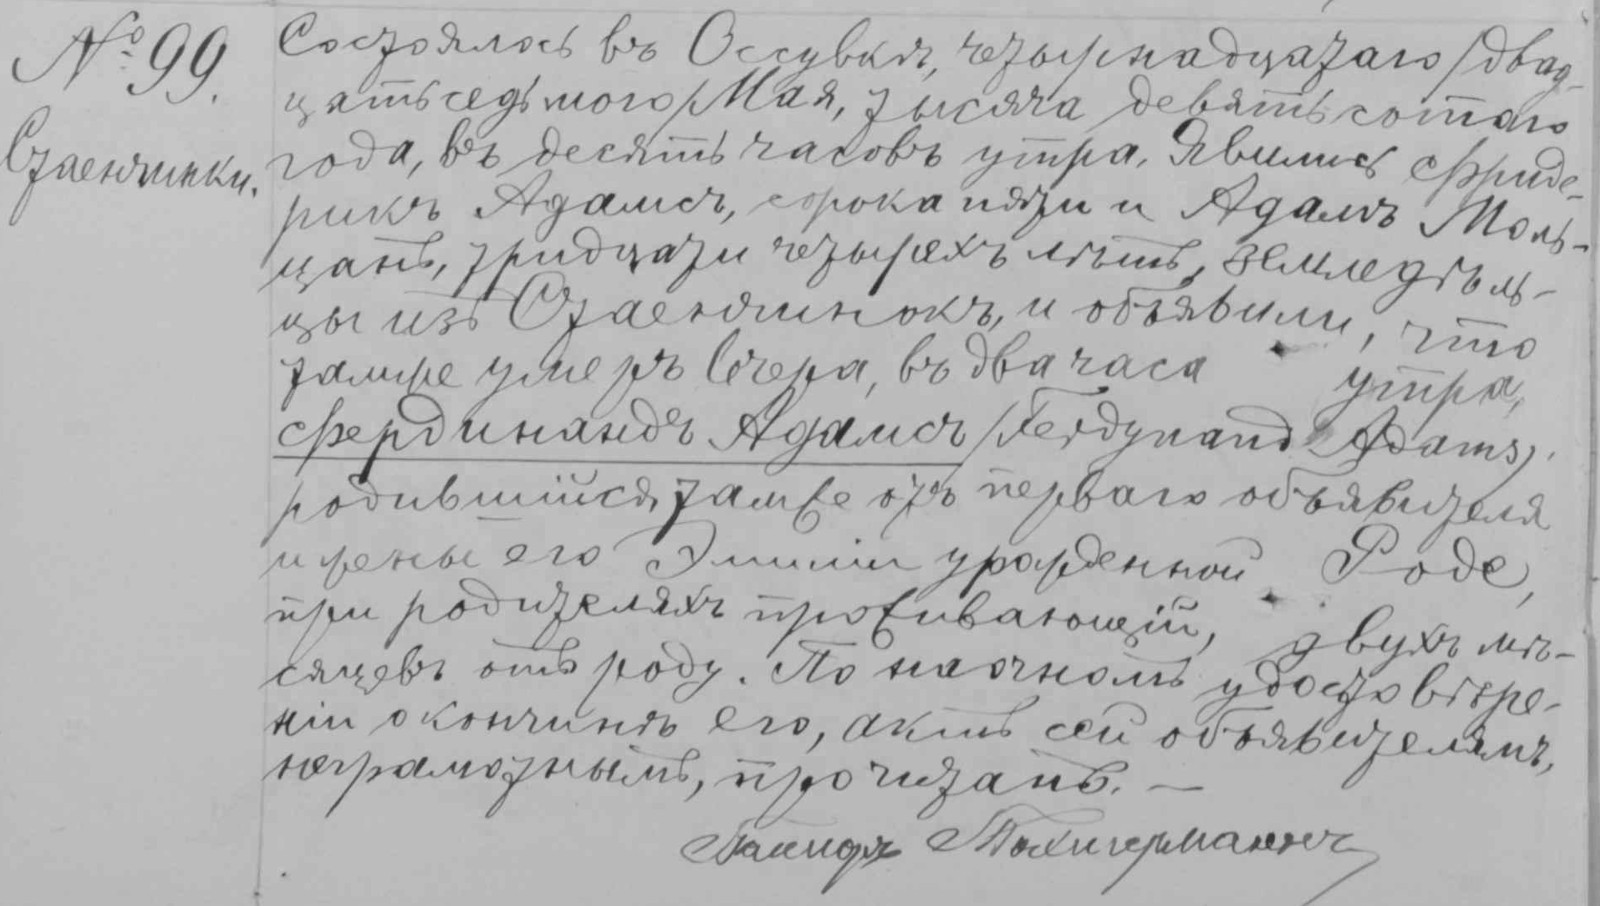 № 99.
Стаенчинки.
Состоялось въ Оссувкѣ, четырнадцатаго /двад-
цать седьмого/ Мая, тысяча девятьсотаго
года, въ десять часовъ утра. Явились Фриде-
рикъ Адамсъ, сорока пяти и Адамъ Моль-
цанъ, тридцати четырехъ лѣтъ, земледѣль-
цы изъ Стаенчинокъ, и объявили, что
тамже умеръ вчера, въ два часа утра,
Фердинандъ Адамсъ /Ferdynand Adams/,
родившійся тамже отъ перваго объявителя
и жены его Эмиліи урожденной Роде,
при родителяхъ проживающій, двухъ мѣ-
сяцевъ отъ роду. По наочномъ удостовѣре-
ніи о кончинѣ его, актъ сей объявителямъ,
неграмотнымъ, прочитанъ. —
Пасторъ